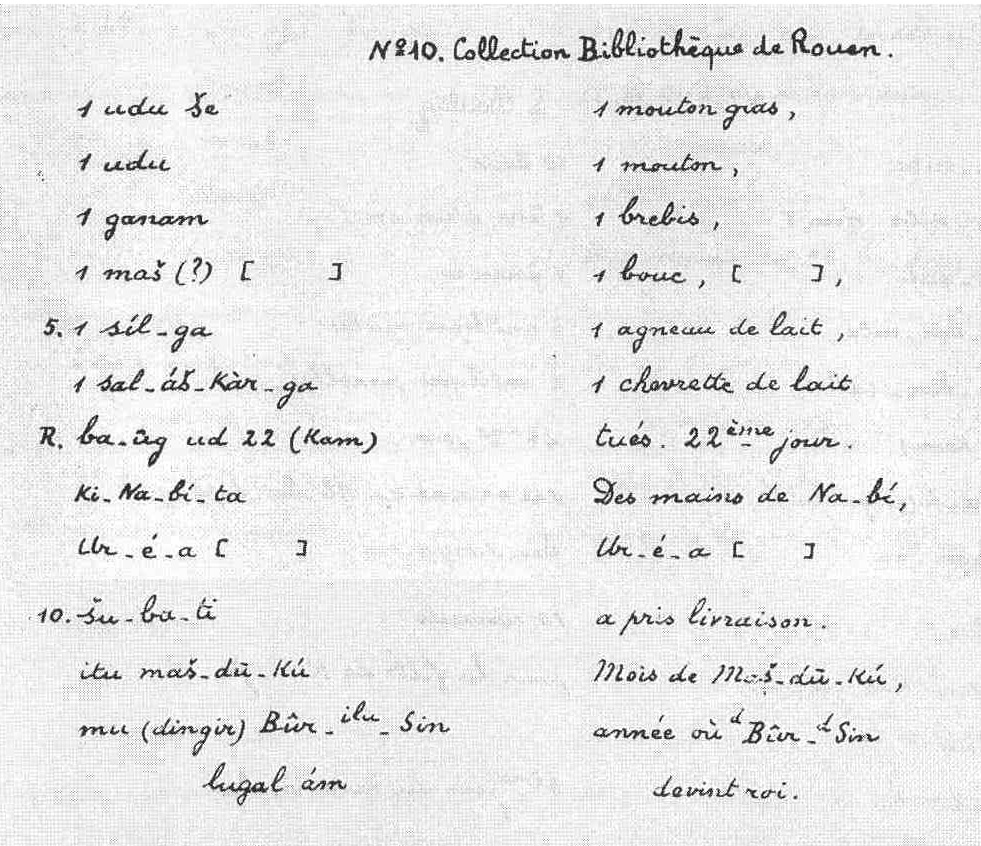 Nº 10. Collection Bibliothèque de Rouen.
1 udu še 1 mouton gras,
1 udu 1 mouton,
1 ganam 1 brebis,
1 maš (?) [ ] 1 bouc, [ ],
5. 1 síl-ga 1 agneau de lait,
1 sal-áš-Kàr-ga 1 chevrette de lait
R. ba-ūg ud 22 (Kam) tués. 22ème jour.
Ki-Na-bí-ta Des mains de Na-bí,
Ur-é-a [ ] Ur-é-a [ ]
10. šu-ba-ti a pris livraison.
itu maš-dū-Kú Mois de Maš-dū-Kú,
mu (dingir) Bûr-ilu-Sin année où dBûr-dSin
lugal ám devint roi.